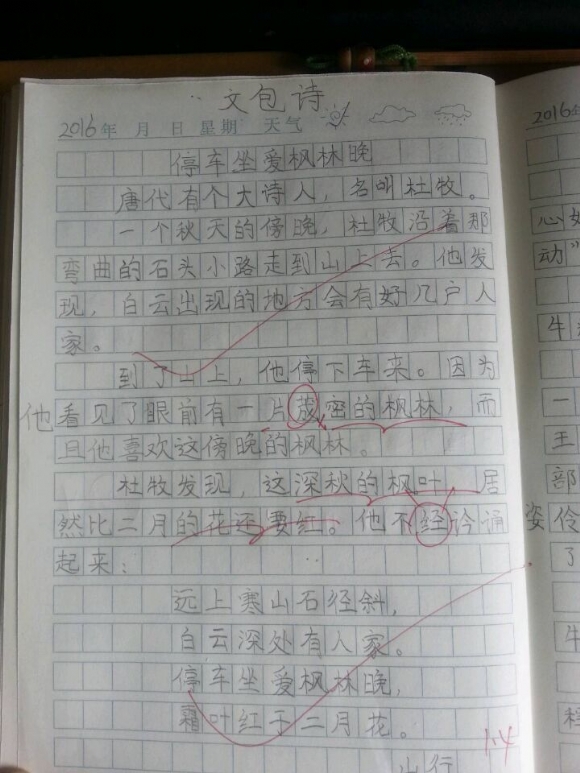 文包诗
2016年 月 日 星期 天气
停车坐爱枫林晚
唐代有个大诗人,名叫杜牧。
一个秋天的傍晚,杜牧沿着那
弯曲的石头小路走到山上去。他发
现,白云出现的地方会有好几户人
家。
到了山上,他停下车来。因为
他看见了眼前有一片茂密的枫林,而
且他喜欢这傍晚的枫林。
杜牧发现,这深秋的枫叶,居
然比二月的花还要红。他不经吟诵
起来:
远上寒山石径斜,
白云深处有人家。
停车坐爱枫林晚,
霜叶红于二月花。
1.4
山行
2016年
心如
动”
牛
一
王
部
姿伶
了
牛